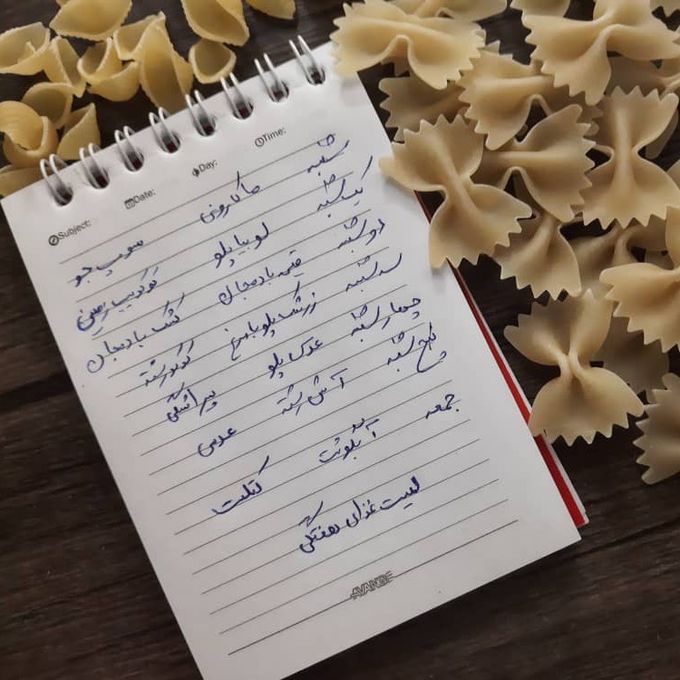 Subject:
Date:
Day:
Time:
شنبه ماکارونی سوپ جو
یکشنبه لوبیا پلو کوکو سیب زمینی
دوشنبه قیمه بادمجان کشک بادمجان
سه شنبه زرشک پلو با مرغ کوکو رشته
چهارشنبه عدس پلو پیراشکی
پنج شنبه آش رشته عدسی
جمعه آبگوشت کتلت
لیست غذای هفتگی
AVANDE